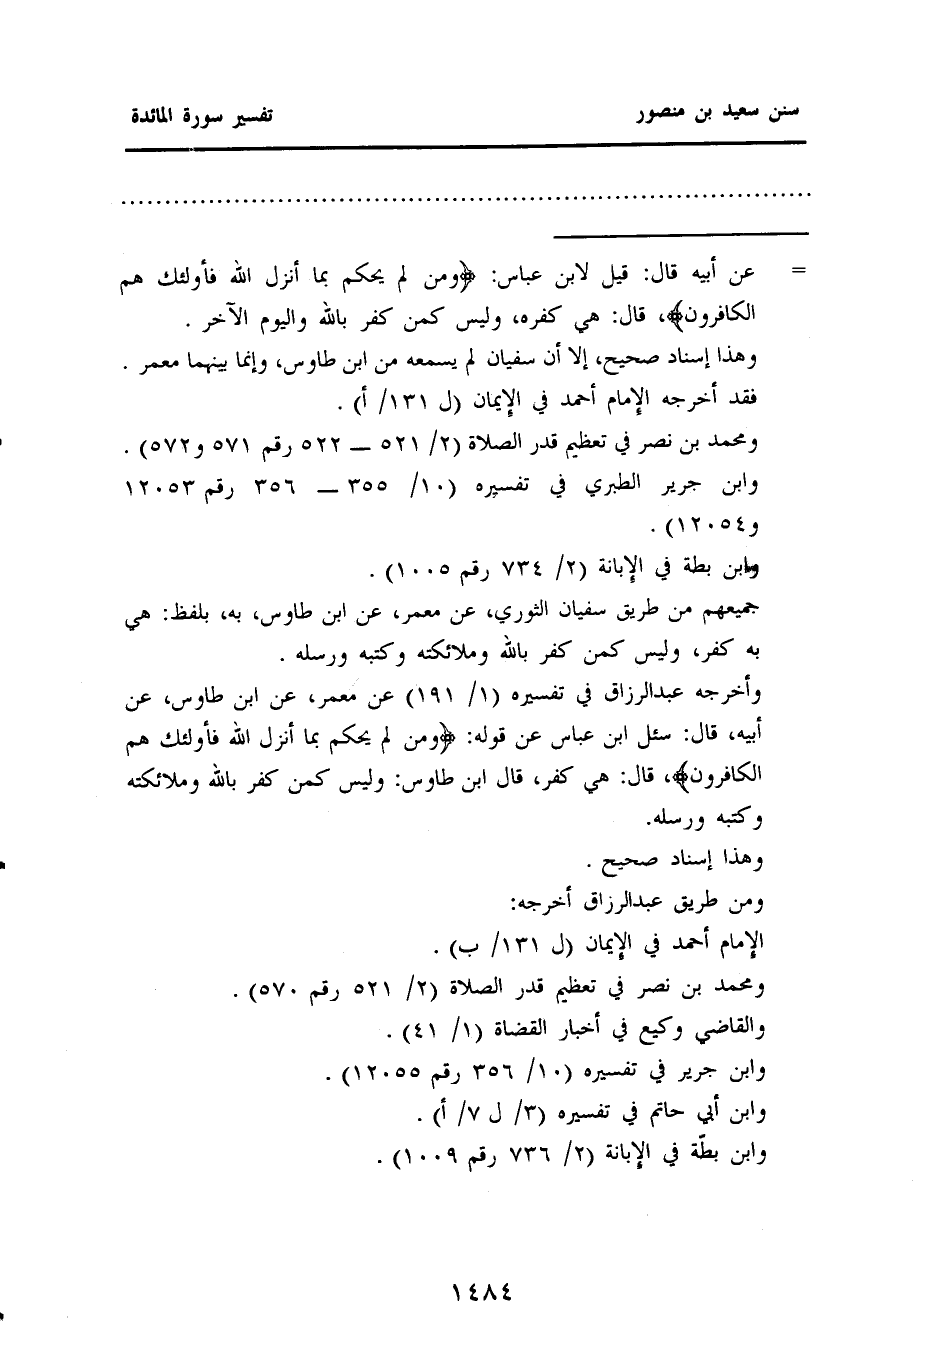 سنن سعيد بن منصور تفسير سورة المائدة
= عن أبيه قال: قيل لابن عباس: ﴿ومن لم يحكم بما أنزل الله فأولئك هم
الكافرون﴾، قال: هي كفره، وليس كمن كفر بالله واليوم الآخر .
وهذا إسناد صحيح، إلا أن سفيان لم يسمعه من ابن طاوس، وإنما بينهما معمر .
فقد أخرجه الإمام أحمد في الإيمان (ل ١٣١/ أ) .
ومحمد بن نصر في تعظيم قدر الصلاة (٢/ ٥٢١ ــ ٥٢٢ رقم ٥٧١ و٥٧٢) .
وابن جرير الطبري في تفسيره (١٠/ ٣٥٥ ــ ٣٥٦ رقم ١٢٠٥٣
و١٢٠٥٤) .
وابن بطة في الإبانة (٢/ ٧٣٤ رقم ١٠٠٥) .
جميعهم من طريق سفيان الثوري، عن معمر، عن ابن طاوس، به، بلفظ: هي
به كفر، وليس كمن كفر بالله وملائكته وكتبه ورسله .
وأخرجه عبدالرزاق في تفسيره (١/ ١٩١) عن معمر، عن ابن طاوس، عن
أبيه، قال: سئل ابن عباس عن قوله: ﴿ومن لم يحكم بما أنزل الله فأولئك هم
الكافرون﴾، قال: هي كفر، قال ابن طاوس: وليس كمن كفر بالله وملائكته
وكتبه ورسله.
وهذا إسناد صحيح .
ومن طريق عبدالرزاق أخرجه:
الإمام أحمد في الإيمان (ل ١٣١/ ب) .
ومحمد بن نصر في تعظيم قدر الصلاة (٢/ ٥٢١ رقم ٥٧٠) .
والقاضي وكيع في أخبار القضاة (١/ ٤١) .
وابن جرير في تفسيره (١٠/ ٣٥٦ رقم ١٢٠٥٥) .
وابن أبي حاتم في تفسيره (٣/ ل ٧/ أ) .
وابن بطّة في الإبانة (٢/ ٧٣٦ رقم ١٠٠٩) .
١٤٨٤